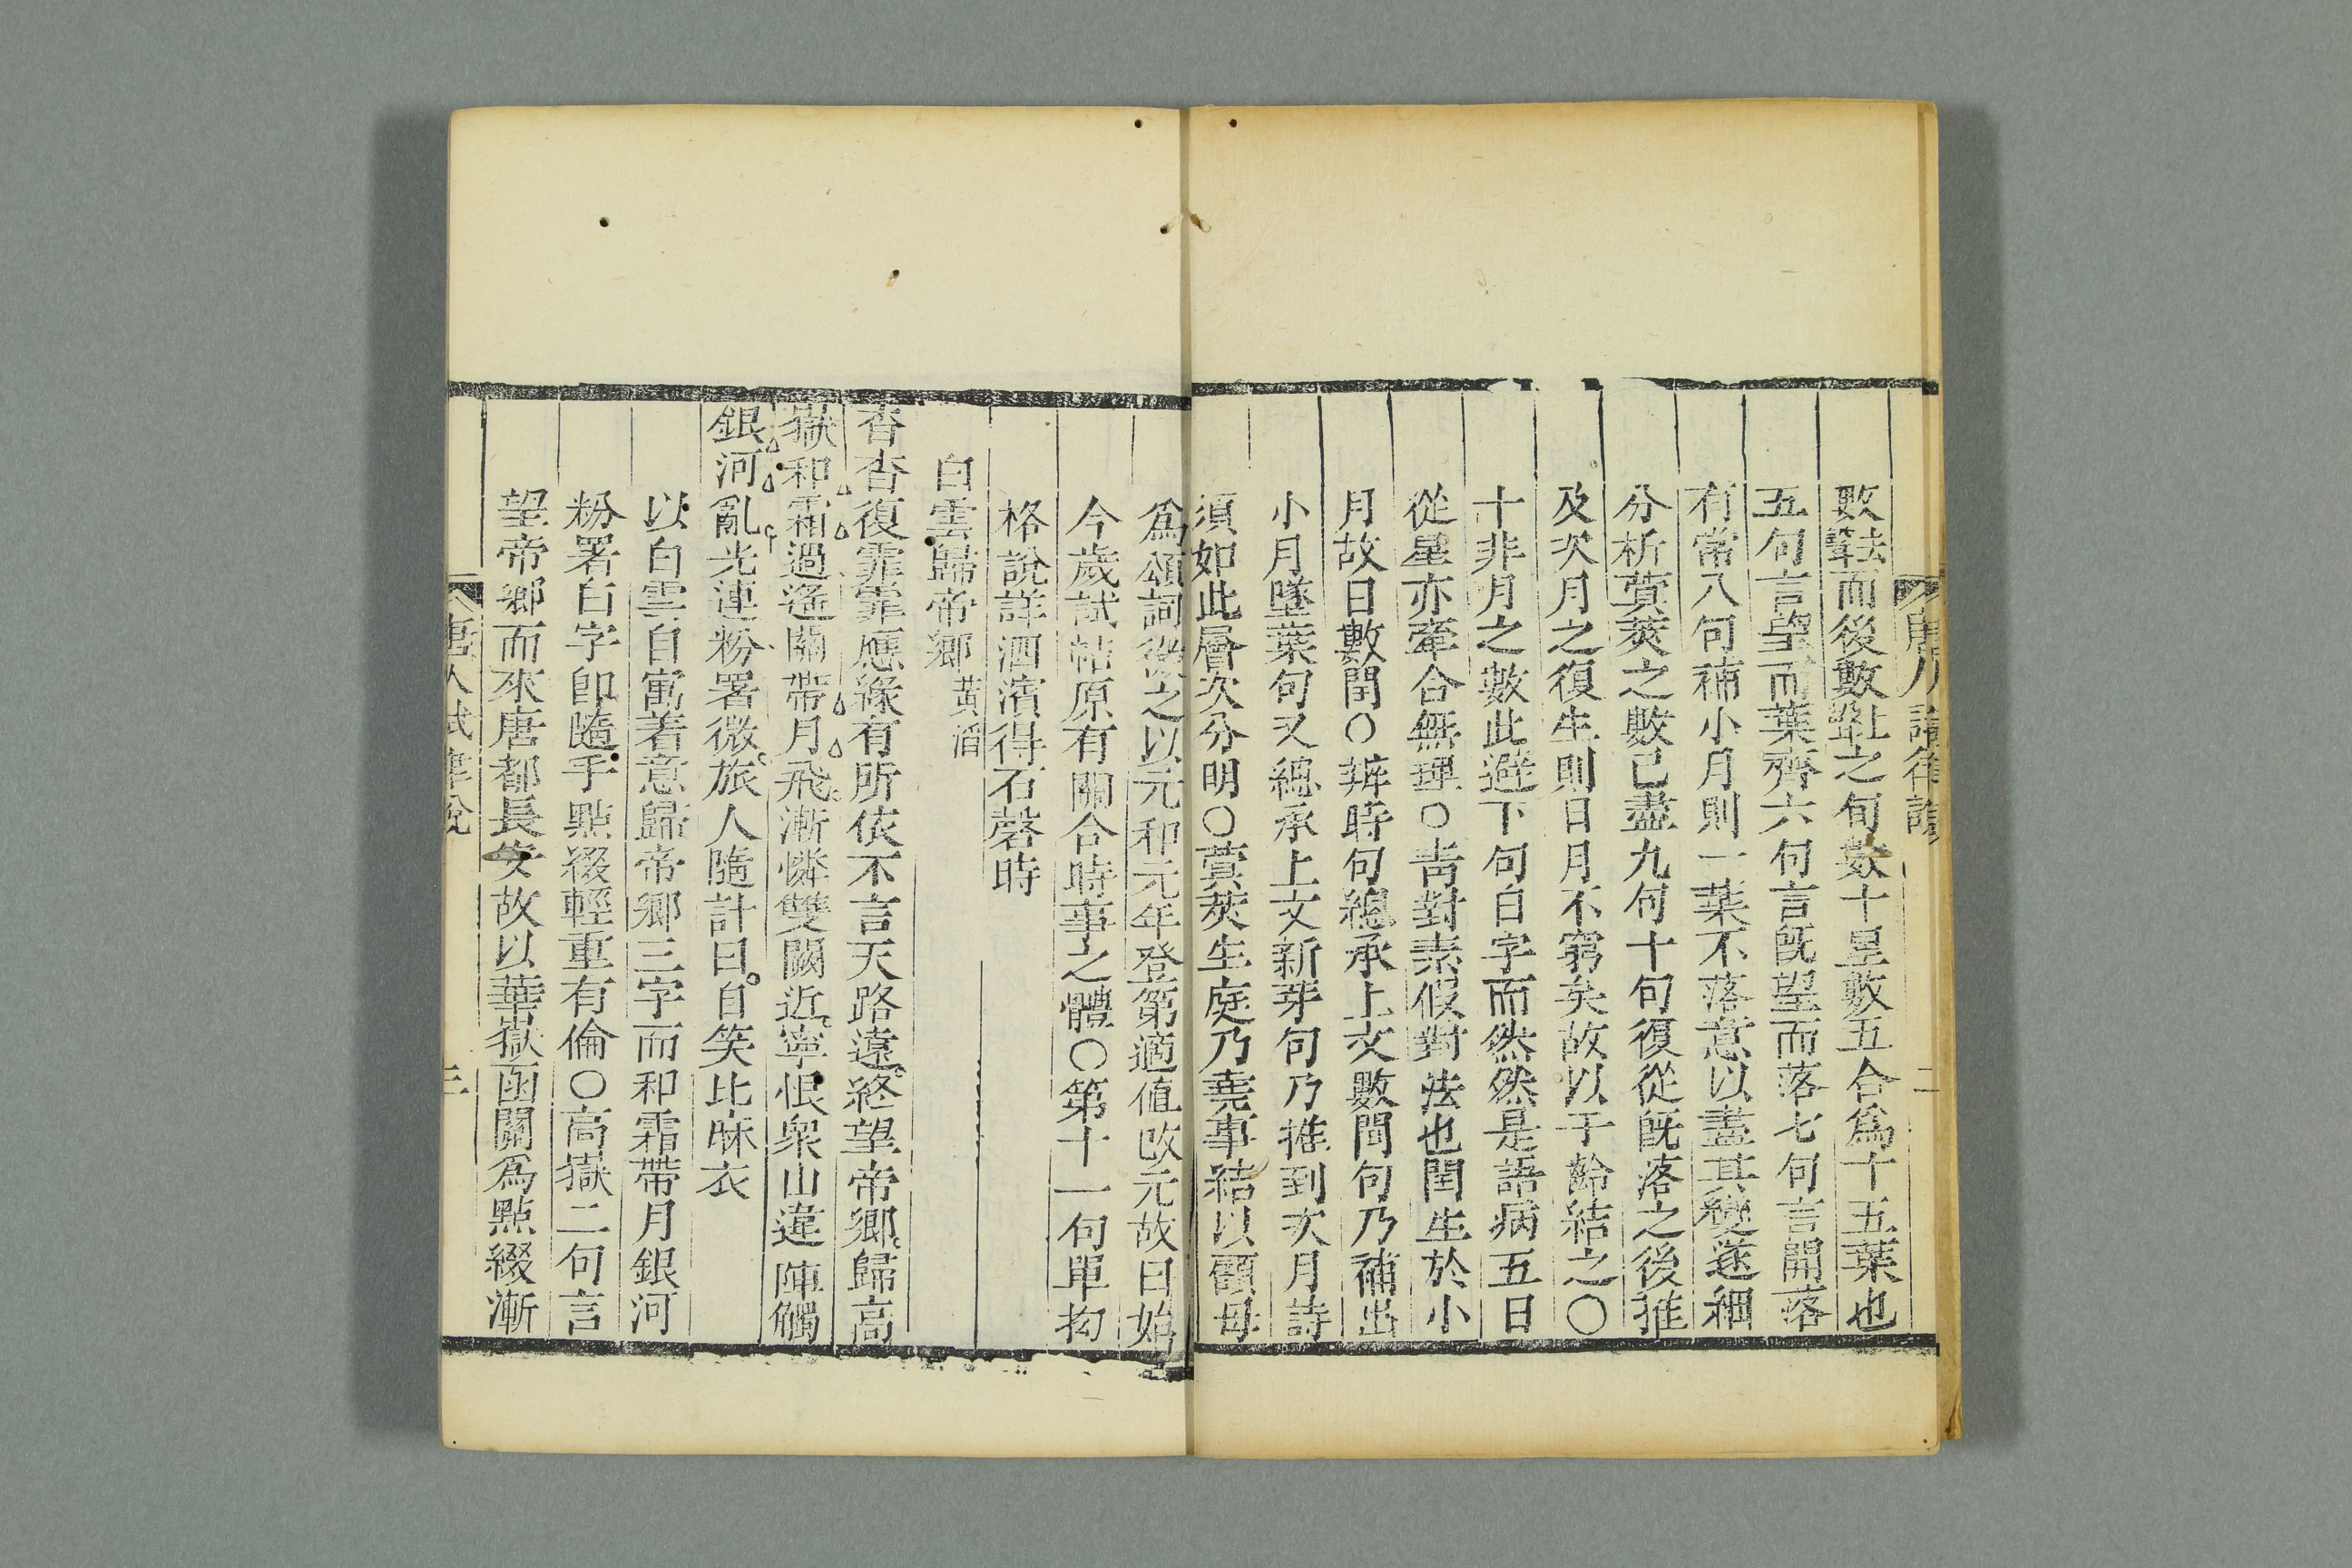 數莢而後數對之旬數十星數五合爲十五葉也
五句言望而葉齊六句言旣望而落七句言開落
有常八句補小月則一葉不落意以盡其變遂細
分析蓂莢之數已盡九句十句復從旣落之後推
及次月之復生則日月不窮矣故以于齡結之〇
十非月之數此避下句白字而然然是語病五日
從星亦牽合無理〇靑對素假對法也閏生於小
月故曰數閏〇辨時句總承上文數閏句乃補出
小月墜葉句又總承上文新芽句乃推到次月詩
須如此層次分明〇蓂莢生庭乃堯事結以願毋
爲頌詞從之以元和元年登第適値改元故曰始
今歲試帖原有關合時事之體〇第十一句單拘
格說詳泗濱得石磬時
白雲歸帝鄕 黃滔
杳杳復霏霏應緣有所依不言天路遠終望帝鄕歸高
嶽和霜過遙關帶月飛漸憐雙闕近寧恨衆山違陣觸
銀河亂光連粉署微旅人隨計日自笑比麻衣
以白雲自寓着意歸帝鄕三字而和霜帶月銀河
粉署白字卽隨手點綴輕重有倫〇高嶽二句言
望帝鄕而來唐都長安故以華嶽函關爲點綴漸
唐人試律說 三